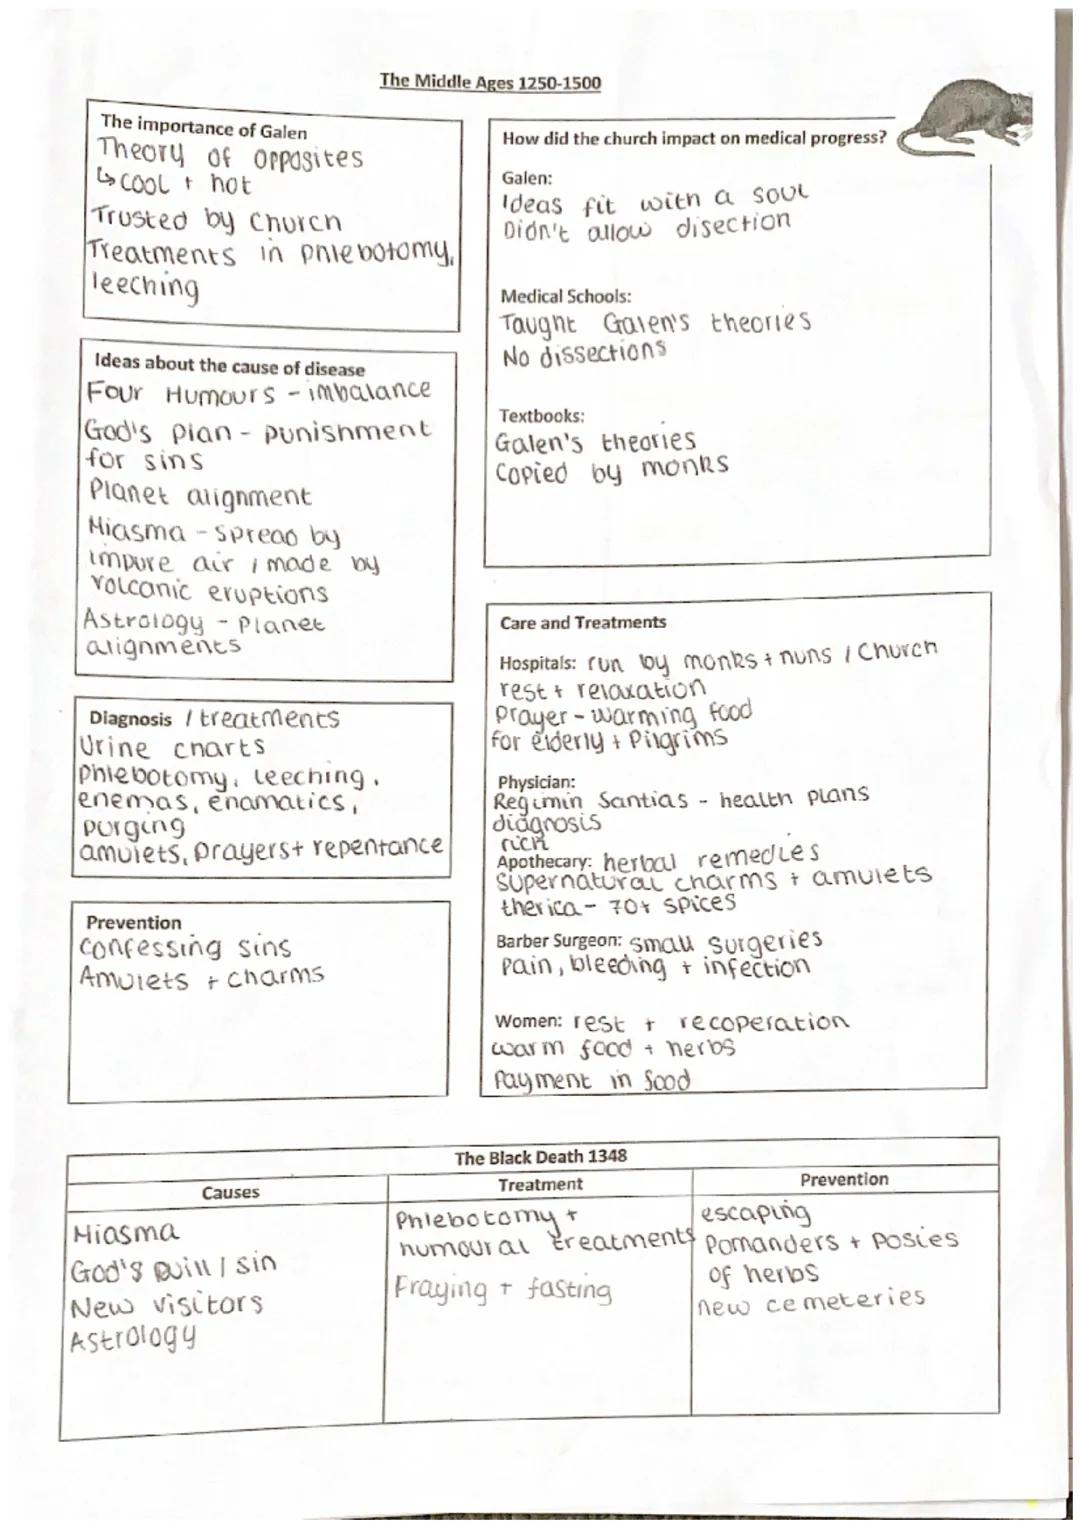 The Middle Ages 1250-1500
The importance of Galen
Theory of opposites
↳ cool + hot
Trusted by Church
Treatments in phlebotomy,
leeching
Ideas about the cause of disease
Four Humours - imbalance
God's plan - punishment
for sins
Planet alignment
Miasma - spread by
impure air / made by
volcanic eruptions
Astrology - Planet
alignments
Diagnosis / treatments
Urine charts
Phlebotomy, leeching,
enemas, enamatics,
purging
amulets, prayers + repentance
Prevention
Confessing sins
Amulets + charms
How did the church impact on medical progress?
Galen:
Ideas fit with a soul
Didn't allow disection
Medical Schools:
Taught Galen's theories
No dissections
Textbooks:
Galen's theories
Copied by monks
Care and Treatments
Hospitals: run by monks + nuns / Church
rest + relaxation
Prayer - warming food
for elderly + Pilgrims
Physician:
Regimin Santias - health plans
diagnosis
rich
Apothecary: herbal remedies
Supernatural charms + amulets
therica - 70+ spices
Barber Surgeon: small surgeries
Pain, bleeding + infection
Women: rest + recoperation
warm food + herbs
Payment in food
The Black Death 1348
Causes
Treatment
Prevention
Miasma
God's will / sin
New visitors
Astrology
Phlebotomy +
humoural treatments
Praying + fasting
escaping
Pomanders + Posies
of herbs
new cemeteries